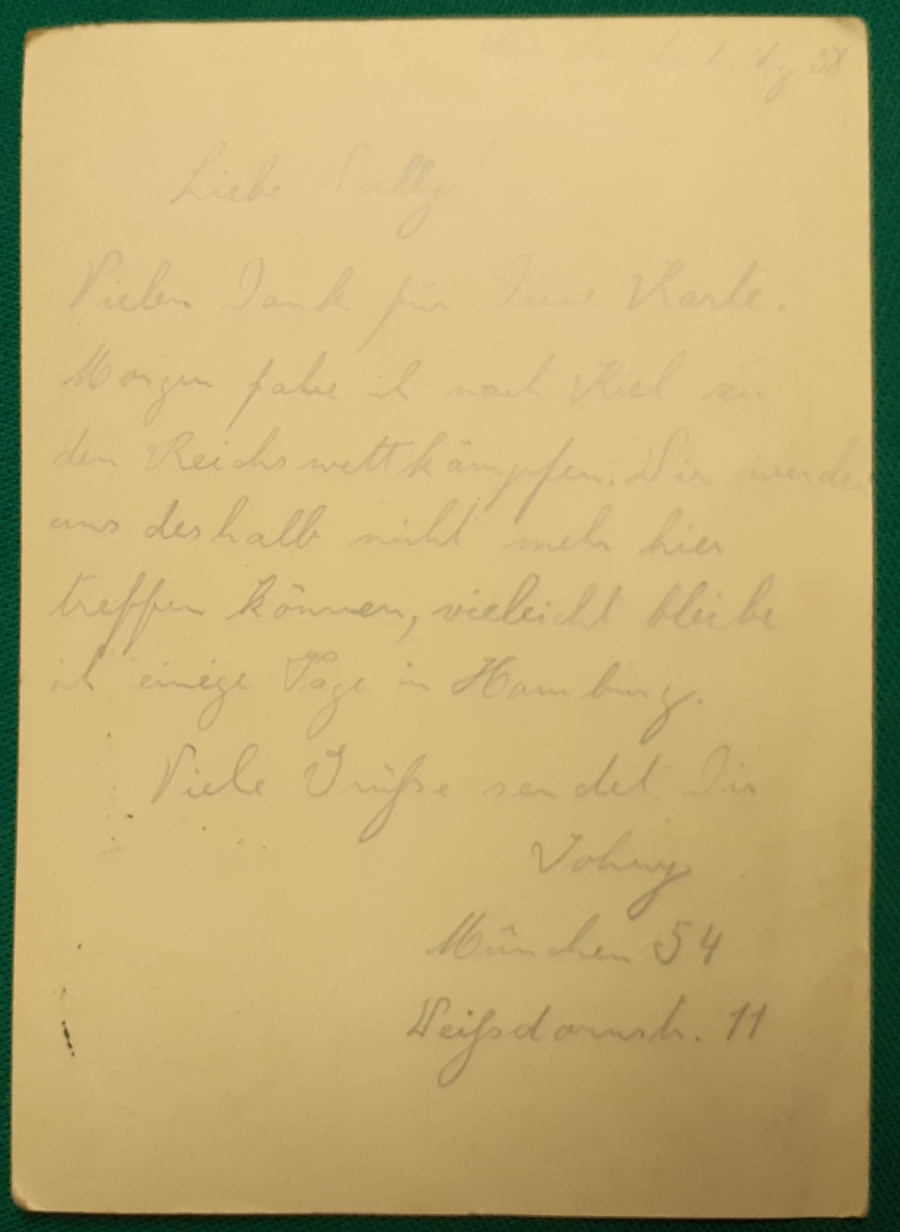 38
Liebe
Vielen Dank für Deine Karte.
Morgen fahre ich nach Kiel zu
den Reichswettkämpfen. Wir werden
uns deshalb nicht mehr hier
treffen können, vieleicht bleibe
ich einige Tage in Hamburg.
Viele Grüße sendet Dir
Johny
München 54
Weißdornstr. 11